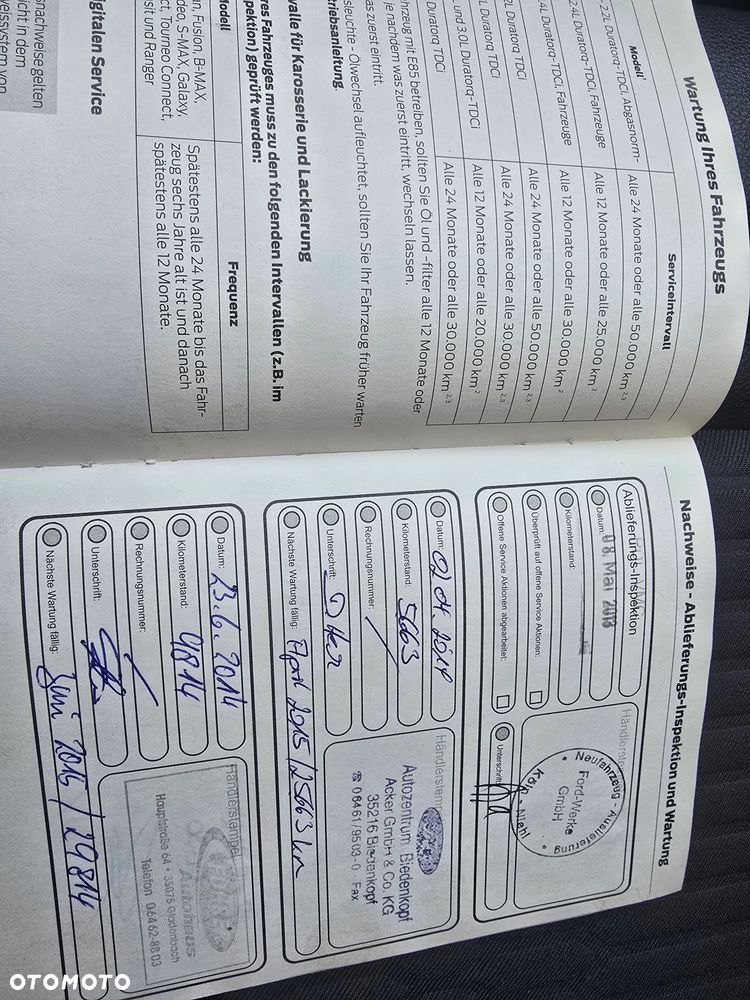 Wartung Ihres Fahrzeugs
Modell¹ Serviceintervall
2,2L Duratorq-TDCi, Abgasnorm- Alle 24 Monate oder alle 50.000 km 2,3
2.4L Duratorq-TDCi, Fahrzeuge Alle 12 Monate oder alle 25.000 km 2
.4L Duratorq-TDCi, Fahrzeuge Alle 12 Monate oder alle 30.000 km 2
2L Duratorq TDCi Alle 24 Monate oder alle 50.000 km 2,3
L Duratorq TDCi Alle 24 Monate oder alle 30.000 km 2,3
. und 3.0L Duratorq-TDCi Alle 12 Monate oder alle 20.000 km 2
Duratorq TDCi Alle 24 Monate oder alle 30.000 km 2,3
hrzeug mit E85 betreiben, sollten Sie Öl und -filter alle 12 Monate oder
je nachdem was zuerst eintritt, wechseln lassen.
as zuerst eintritt.
sleuchte - Ölwechsel aufleuchtet, sollten Sie Ihr Fahrzeug früher warten
riebsanleitung.
valle für Karosserie und Lackierung
res Fahrzeuges muss zu den folgenden Intervallen (z.B. im
pektion) geprüft werden:
Modell Frequenz
an, Fusion, B-MAX,
deo, S-MAX, Galaxy,
ct, Tourneo Connect,
sit und Ranger
Spätestens alle 24 Monate bis das Fahr-
zeug sechs Jahre alt ist und danach
spätestens alle 12 Monate.
igitalen Service
snachweise gelten
icht in dem
weissystem von
Nachweise - Ablieferungs-Inspektion und Wartung
Ablieferungs-Inspektion
Datum: 08. Mai 2013
Kilometerstand:
Überprüft auf offene Service Aktionen:
Offene Service Aktionen abgearbeitet:
Händlerstempel
Neufahrzeug - Auslieferung
Ford-Werke
GmbH
Köln - Niehl
Unterschrift:
Datum: 02 04. 2014
Kilometerstand: 5663
Rechnungsnummer:
Unterschrift:
Nächste Wartung fällig: April 2015 / 25663 km
Händlerstempel
Autozentrum Biedenkopf
Acker GmbH & Co. KG
35216 Biedenkopf
☎ 06461/9503-0 · Fax
Datum: 23.6.2014
Kilometerstand: 9814
Rechnungsnummer:
Unterschrift:
Nächste Wartung fällig: Juni 2015 / 29814
Händlerstempel
Autohaus
Hauptstraße 64 • 35075 Gladenbach
Telefon 06462-8803
OTOMOTO